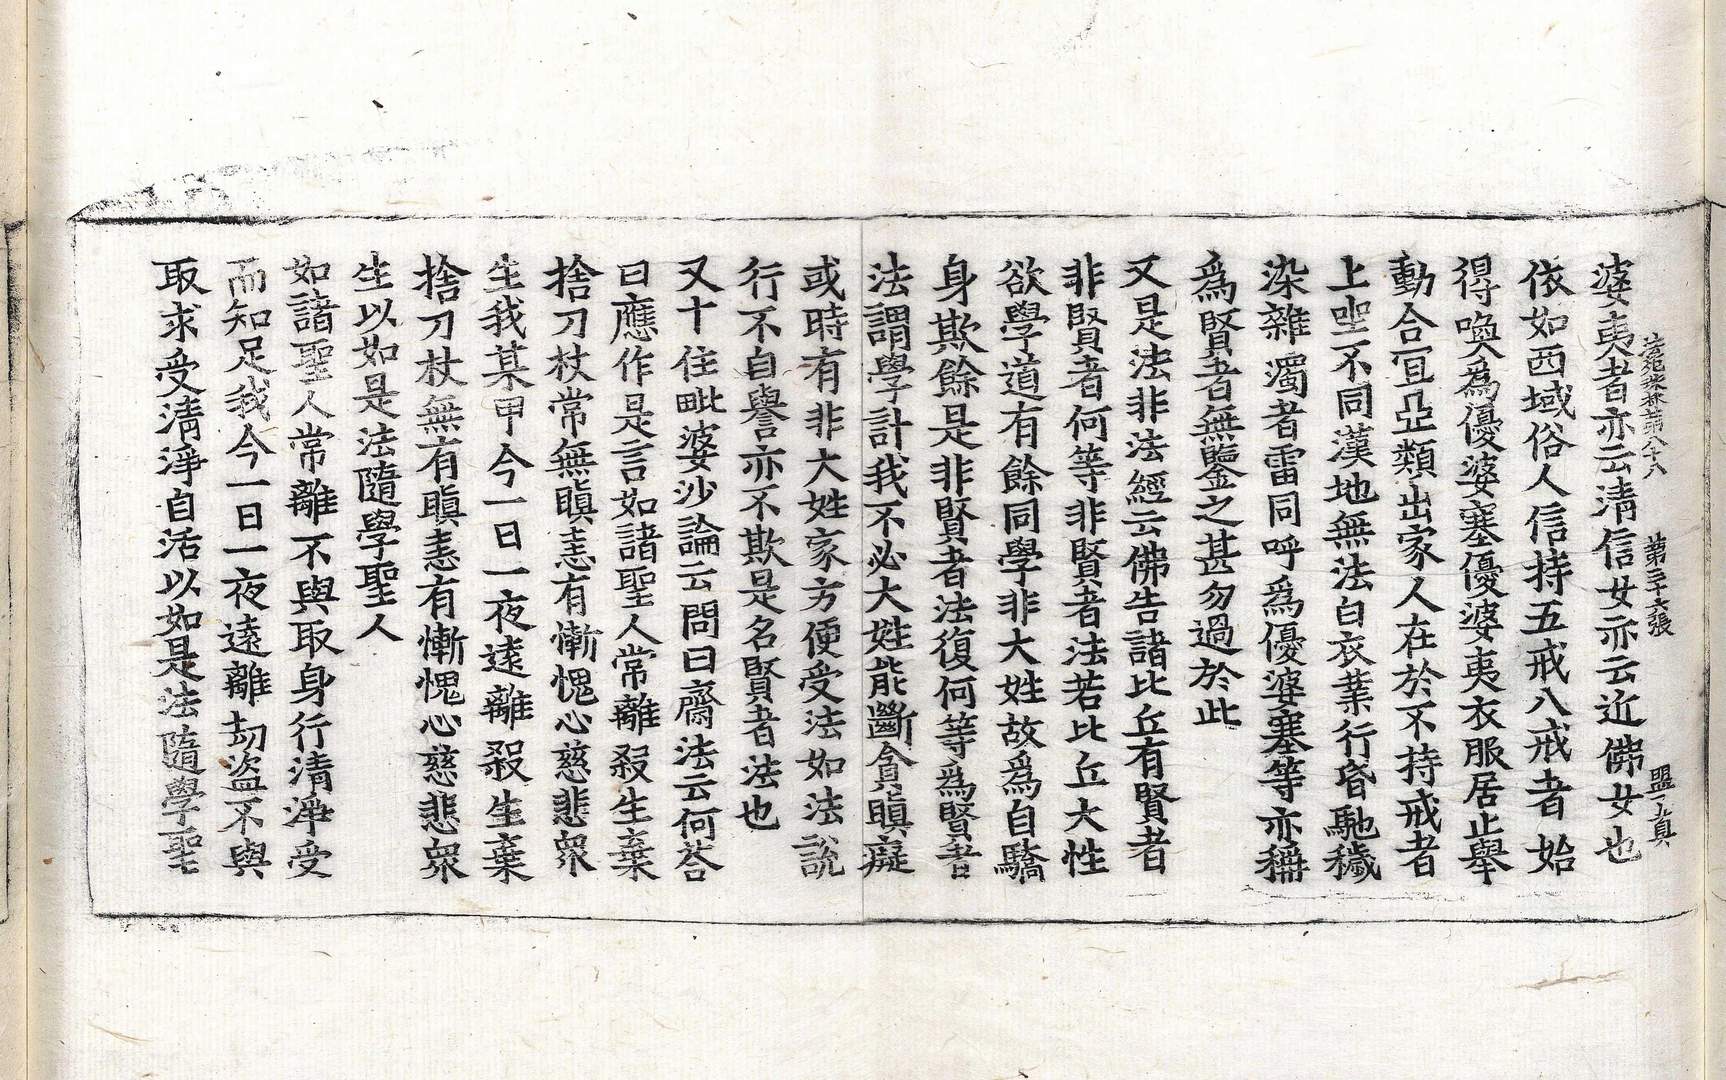 法苑珠林第八十八 第三十六張 盟
婆夷者亦云清信女亦云近佛女也
依如西域俗人信持五戒八戒者始
得喚為優婆塞優婆夷衣服居止舉
動合宜亞類出家人在於不持戒者
上坐不同漢地無法白衣業行昏馳穢
染雜濁者雷同呼為優婆塞等亦稱
為賢者無鑒之甚勿過於此
又是法非法經云佛告諸比丘有賢者
非賢者何等非賢者法若比丘大性
欲學道有餘同學非大姓故為自驕
身欺餘是非賢者法復何等為賢者
法謂學計我不必大姓能斷貪瞋癡
或時有非大姓家方便受法如法說
行不自譽亦不欺是名賢者法也
又十住毗婆沙論云問曰齋法云何荅
曰應作是言如諸聖人常離殺生棄
捨刀杖常無瞋恚有慚愧心慈悲眾
生我某甲今一日一夜遠離殺生棄
捨刀杖無有瞋恚有慚愧心慈悲眾
生以如是法隨學聖人
如諸聖人常離不與取身行清淨受
而知足我今一日一夜遠離劫盜不與
取求受清淨自活以如是法隨學聖